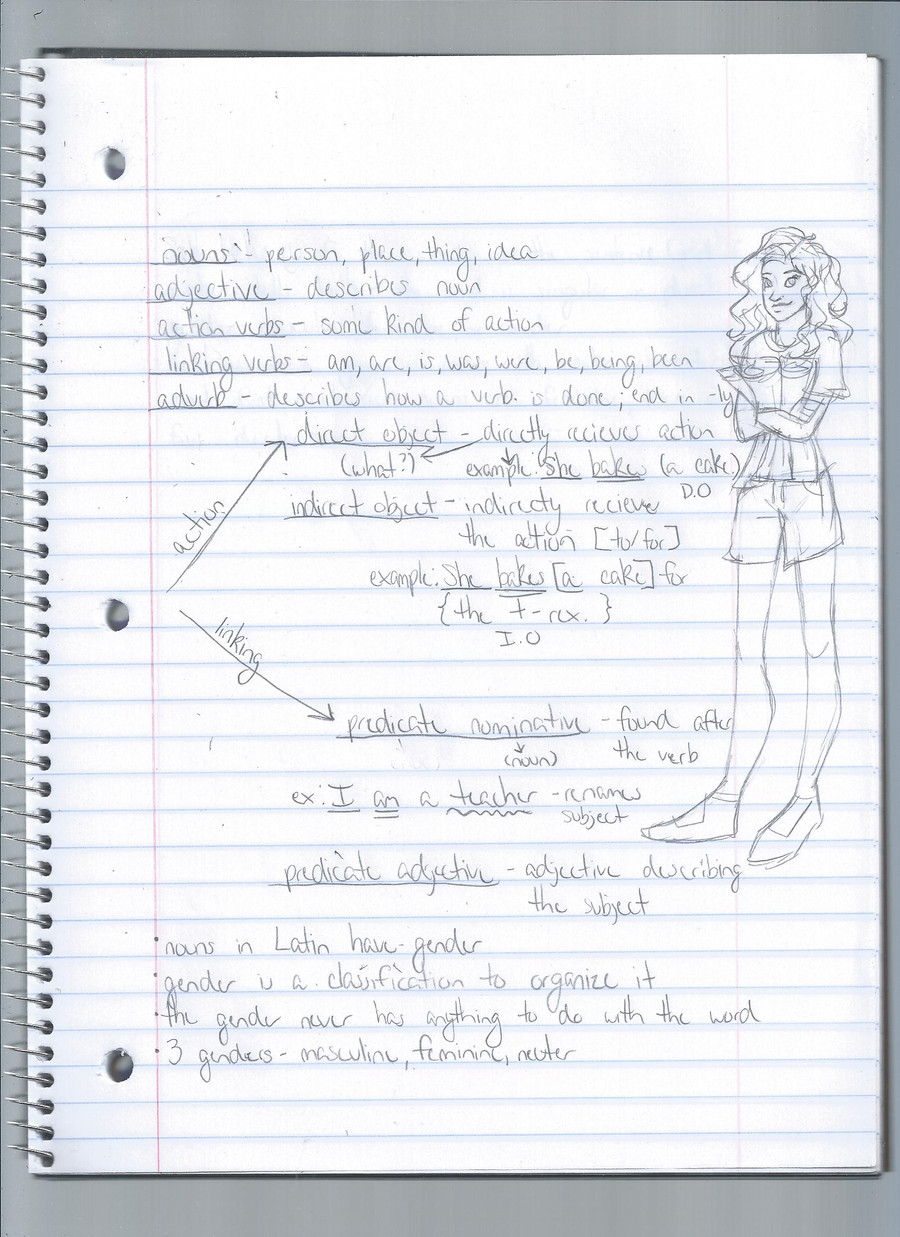 nouns - person, place, thing, idea
adjective - describes noun
action verbs - some kind of action
linking verbs - am, are, is, was, were, be, being, been
adverb - describes how a verb is done; end in -ly
action
direct object - directly reciever action
(what?) example: She bakes (a cake)
D.O
indirect object - indirectly reciever
the action [to/for]
example: She bakes [a cake] for
{the T-rex.}
I.O
linking
predicate nominative - found after
(noun) the verb
ex: I am a teacher - renames
subject
predicate adjective - adjective describing
the subject
· nouns in Latin have gender
· gender is a classification to organize it
· the gender never has anything to do with the word
· 3 genders - masculine, feminine, neuter